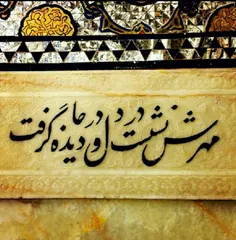 مهرش نشست در دل و در دیده جا گرفت